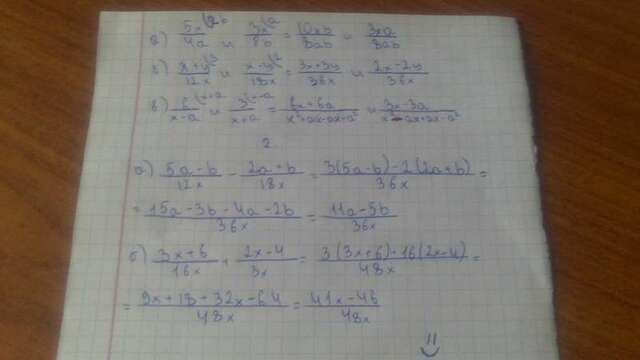 а) 5x/4a (2b и 3x/8b (a = 10xb/8ab и 3xa/8ab
в) x+y/12x (3 и x-y/18x (2 = 3x+3y/36x и 2x-2y/36x
в) 6/x-a (x+a и 3/x+a (x-a = 6x+6a/x²+ax-ax-a² и 3x-3a/x²-ax+ax-a²
2.
а) 5a-b/12x - 2a+b/18x = 3(5a-b)-2(2a+b)/36x =
= 15a-3b-4a-2b/36x = 11a-5b/36x
б) 3x+6/16x + 2x-4/3x = 3(3x+6)+16(2x-4)/48x =
= 9x+18+32x-64/48x = 41x-46/48x